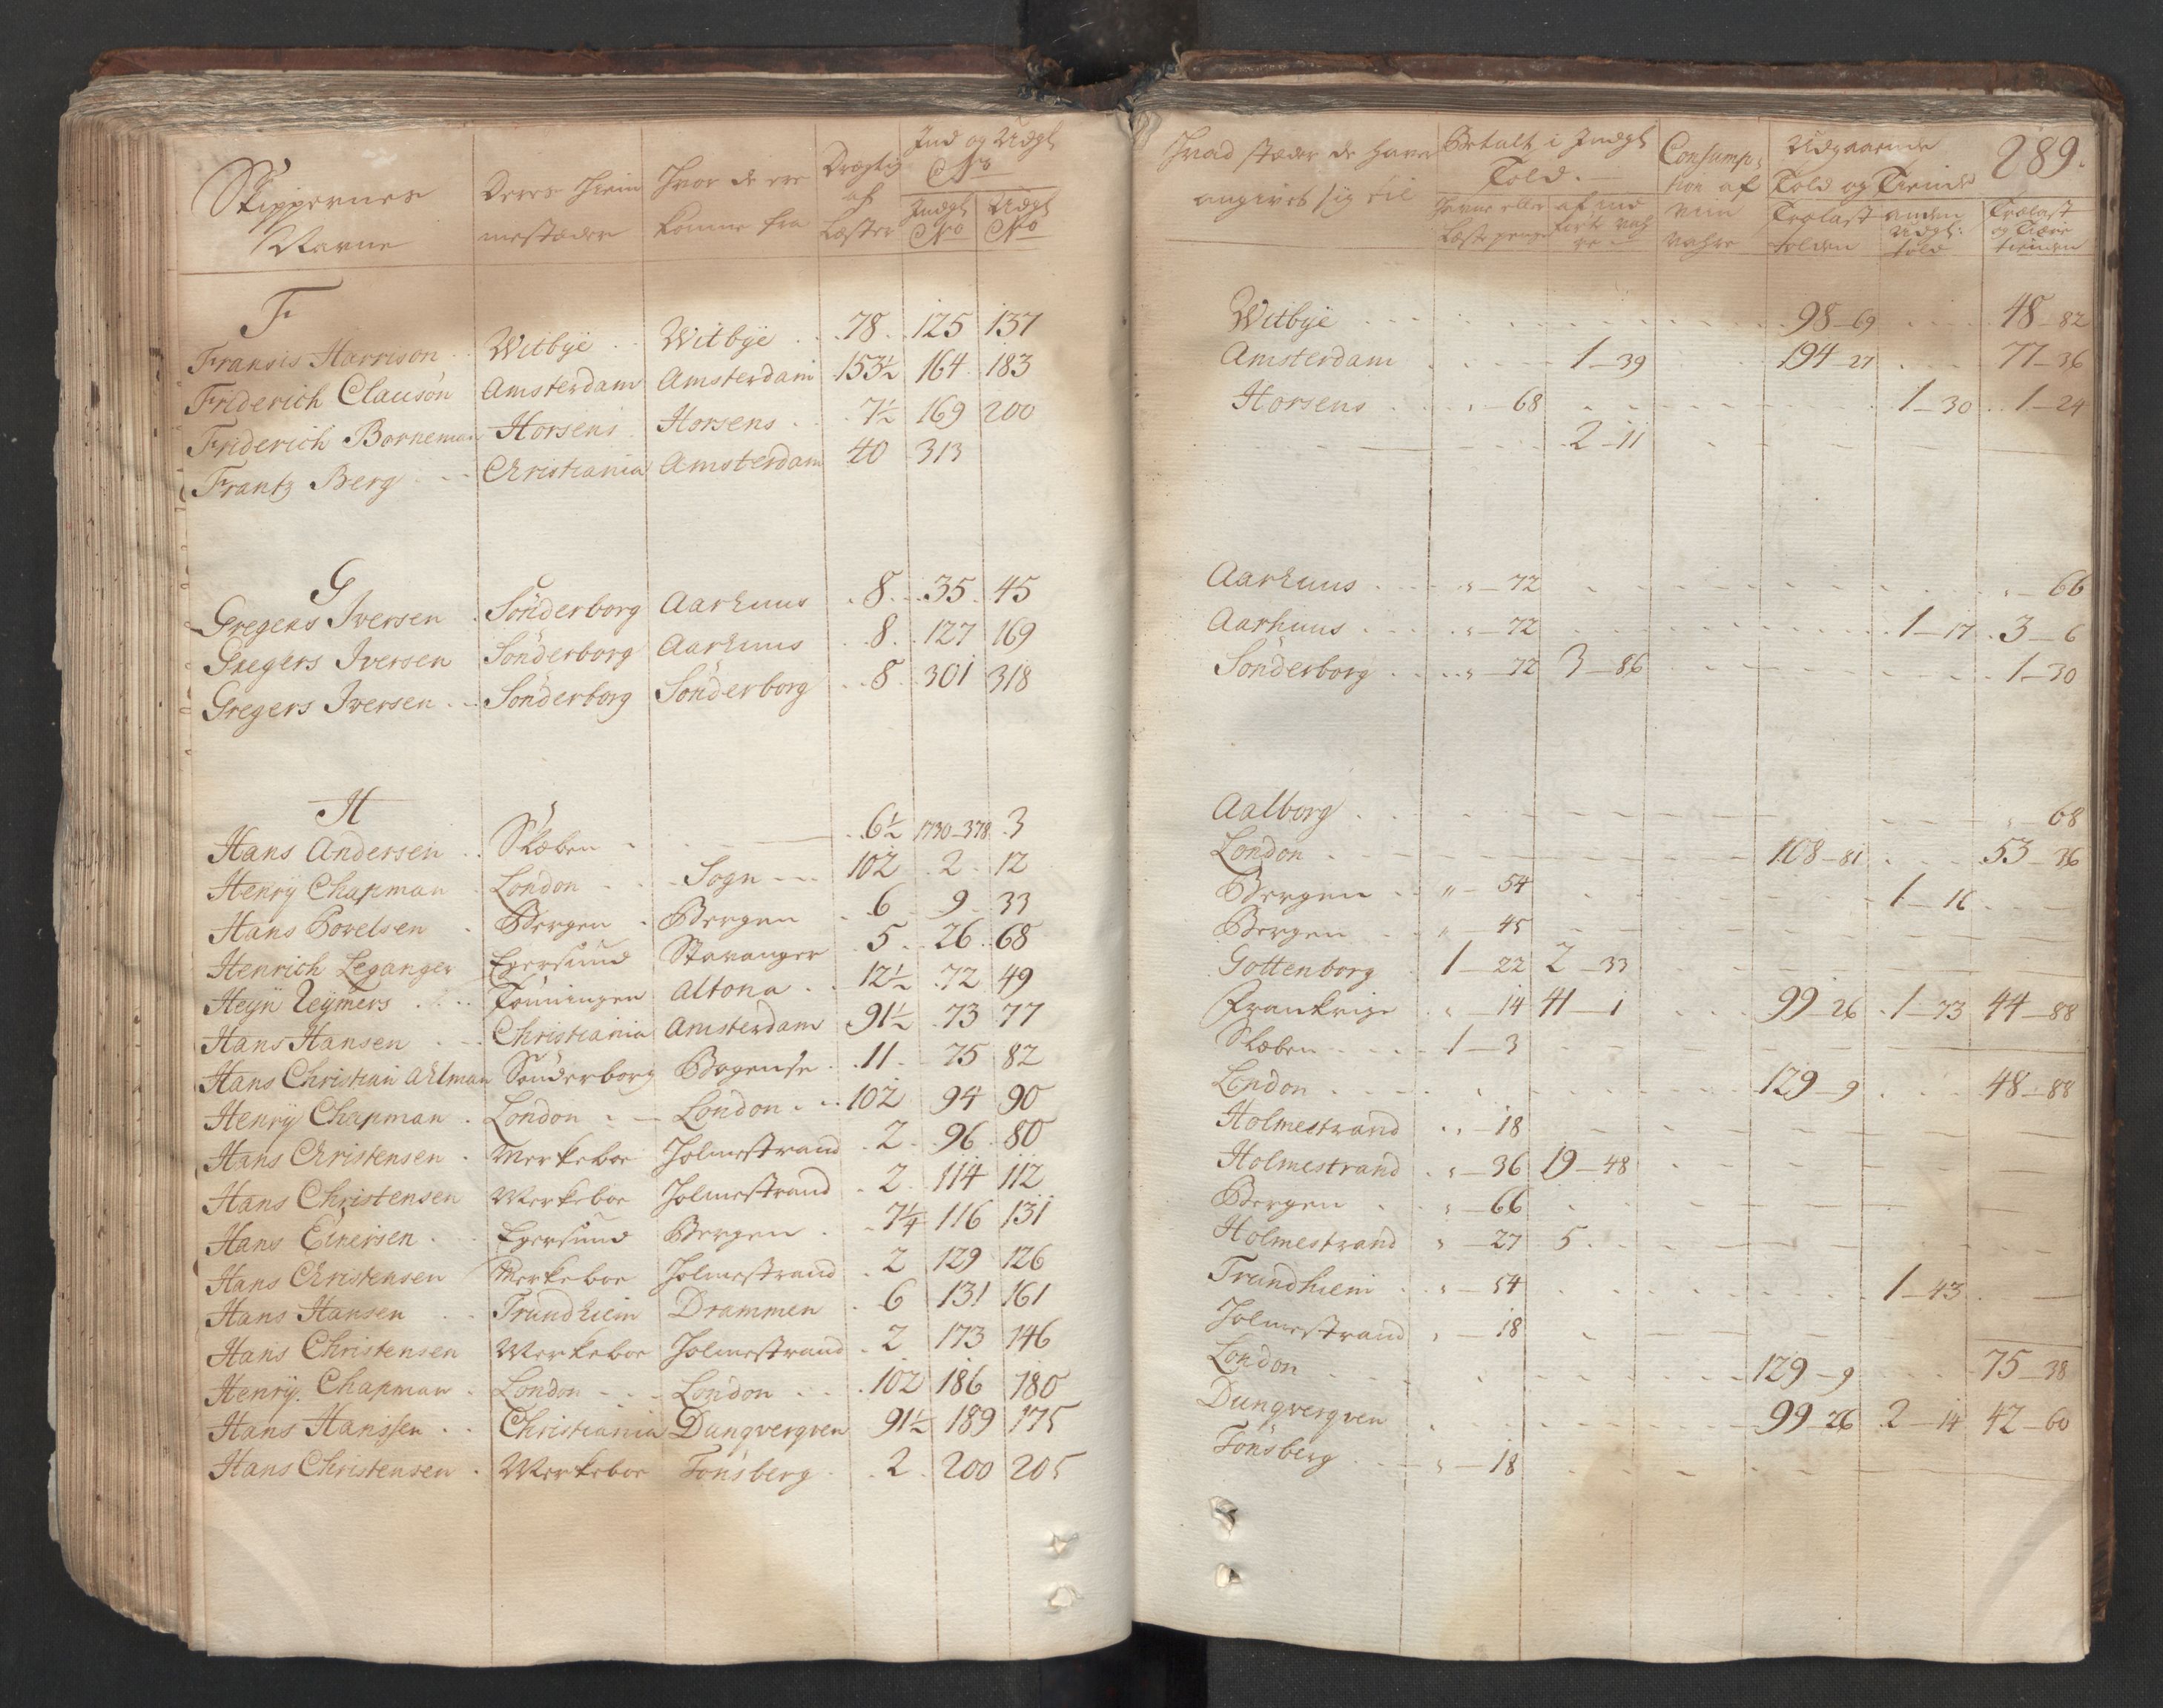 Skippernes Navne | Deres Hiem mestæder | Hvor de ere komne fra | Drægtig af Læster | Ind og Udgl No | Indgl No | Udgl No
Hvad stæder de have angivet sig til | Betalt i Indgl Told. | Consumption af vahre | Udgaaende Told og Tiende | 289.
Trælast tolden | anden Udgl: told | Trælast og Tiære tienden
F
Fransis Harrison | Witbÿe | Witbÿe | 78 | 125 | 137 | Witbÿe | 98-69 | 48-82
Friderich Clauson | Amsterdam | Amsterdam | 153½ | 164 | 183 | Amsterdam | 1-39 | 194-27 | 77-36
Friderich Borneman | Horsens | Horsens | 7½ | 169 | 200 | Horsens | "-68 | 1-30 | 1-24
Frantz Berg | Christiania | Amsterdam | 40 | 313 | 2-11
G
Gregers Iversen | Sönderborg | Aarhuus | 8 | 35 | 45 | Aarhuus | "-72 | "-66
Gregers Iversen | Sönderborg | Aarhuus | 8 | 127 | 169 | Aarhuus | "-72 | 1-17 | 3-6
Gregers Iversen | Sönderborg | Sönderborg | 8 | 301 | 318 | Sönderborg | "-72 | 3-86 | 1-30
H
Hans Andersen | Skeben | 6½ | 1730-378 | 3 | Aalborg | "-68
Henrÿ Chapman | London | Sogn | 102 | 2 | 12 | London | 108-81 | 53-36
Hans Povelsen | Bergen | Bergen | 6 | 9 | 33 | Bergen | "-54 | 1-16
Henrich Leganger | Egersund | Stavanger | 5 | 26 | 68 | Bergen | "-45
Heÿn Reÿmers | Tönningen | Altona | 12½ | 72 | 49 | Gottenborg | 1-22 | 2-33
Hans Hansen | Christiania | Amsterdam | 91½ | 73 | 77 | Frankrige | "-14 | 41-1 | 99-26 | 1-73 | 44-88
Hans Christian Ahlman | Sönderborg | Bogense | 11 | 75 | 82 | Skeben | 1-3
Henrÿ Chapman | London | London | 102 | 94 | 90 | London | 129-9 | 48-88
Hans Christensen | Werkeboe | Holmestrand | 2 | 96 | 80 | Holmestrand | "-18
Hans Christensen | Werkeboe | Holmestrand | 2 | 114 | 112 | Holmestrand | "-36 | 19-48
Hans Einersen | Egersund | Bergen | 7¼ | 116 | 131 | Bergen | "-66
Hans Christensen | Werkeboe | Holmestrand | 2 | 129 | 126 | Holmestrand | "-27 | 5
Hans Hansen | Trundhiem | Drammen | 6 | 131 | 161 | Trundhiem | "-54 | 1-43
Hans Christensen | Werkeboe | Holmestrand | 2 | 173 | 146 | Holmestrand | "-18
Henrÿ Chapman | London | London | 102 | 186 | 180 | London | 129-9 | 75-38
Hans Hanssen | Christiania | Dunqverqven | 91½ | 189 | 175 | Dunqverqven | 99-26 | 2-14 | 42-60
Hans Christensen | Werkeboe | Tönsberg | 2 | 200 | 205 | Tönsberg | "-18